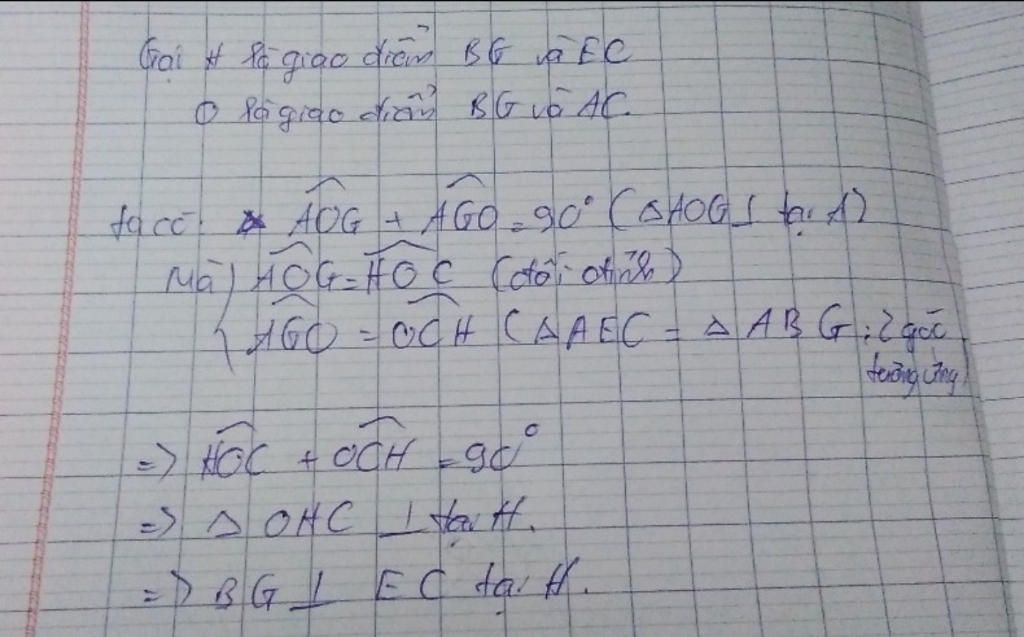 Gọi H là giao điểm BG và EC
O là giao điểm BG và AC.
ta có: AOG + AGO = 90° (△AOG ⊥ tại A)
Mà) AOG = HOC (đối đỉnh)
{ AGO = OCH (△AEC = △ABG; 2 góc
tương ứng)
=> HOC + OCH = 90°
=> △OHC ⊥ tại H.
=> BG ⊥ EC tại H.